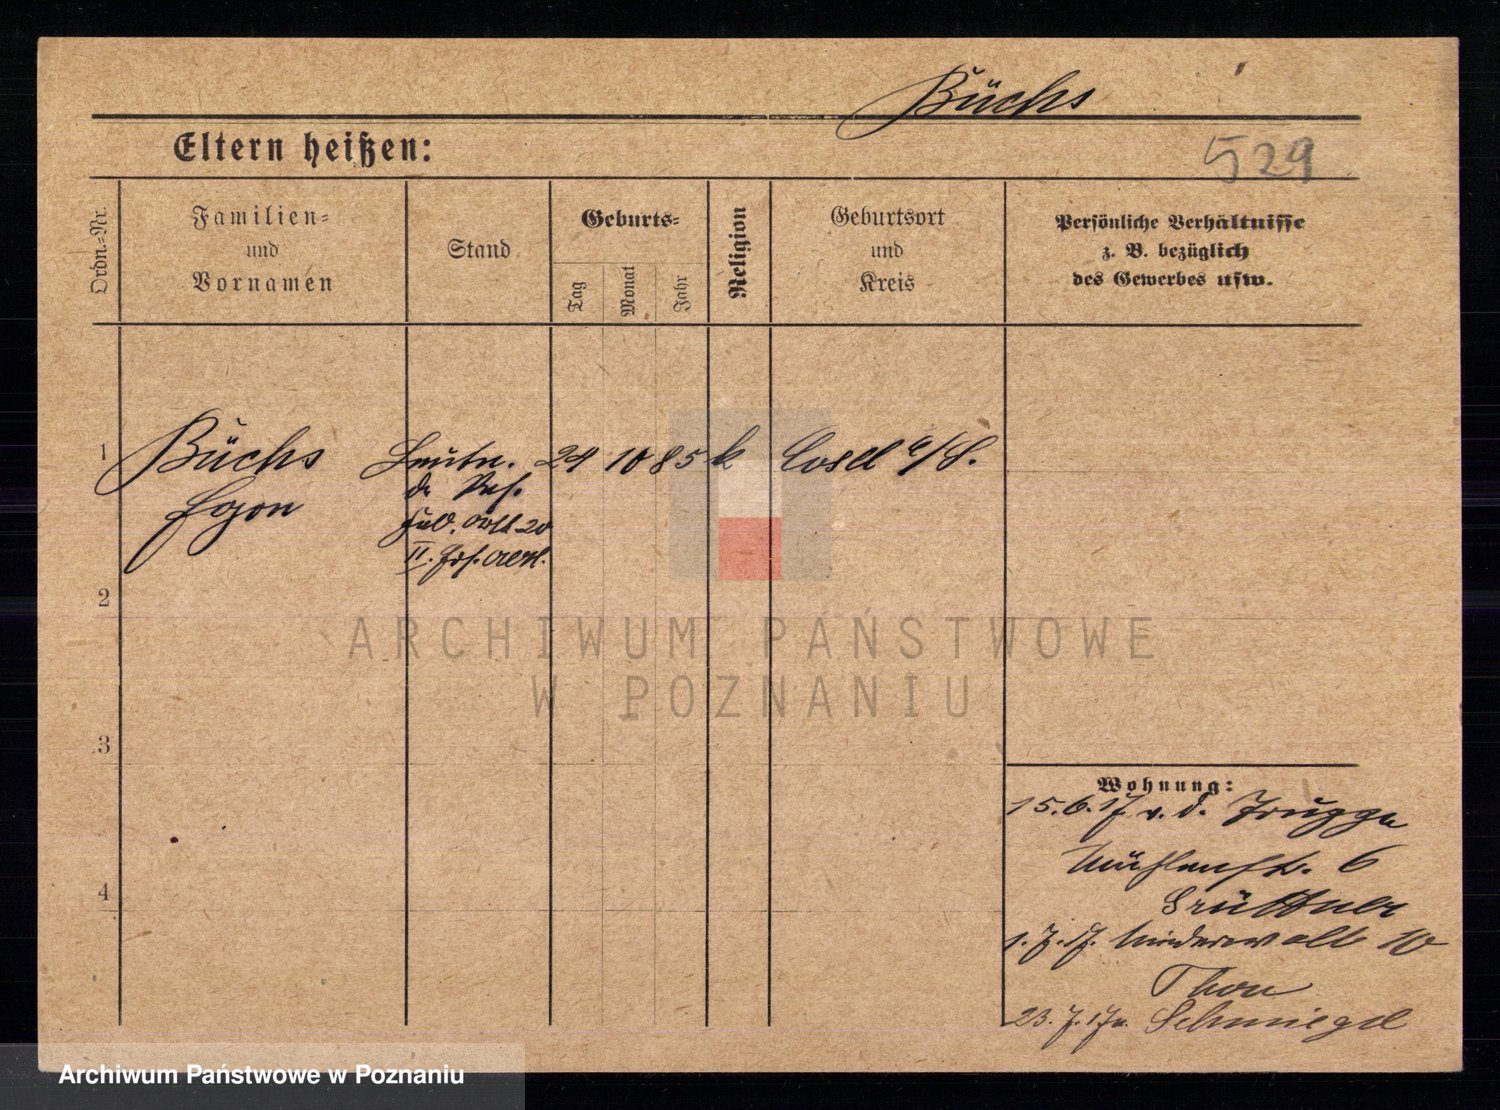 Büchs
Eltern heißen:
529
Ordn.-Nr.
Familien-
und
Vornamen
Stand
Geburts-
Tag
Monat
Jahr
Religion
Geburtsort
und
Kreis
Persönliche Verhältnisse
z. B. bezüglich
des Gewerbes usw.
1
Büchs Leutn. 24 10 85 k Cosel a/S.
Egon
d. Res.
Feld. Artl 20
II. Ers. Abtl.
2
3
4
Wohnung:
15.6.17. v. d. Truppe
Mühlenstr. 6
Grüttner
1.7.17. Niederwall 10
Thon
23.7.17 n. Schmiegel
ARCHIWUM PAŃSTWOWE
W POZNANIU
Archiwum Państwowe w Poznaniu